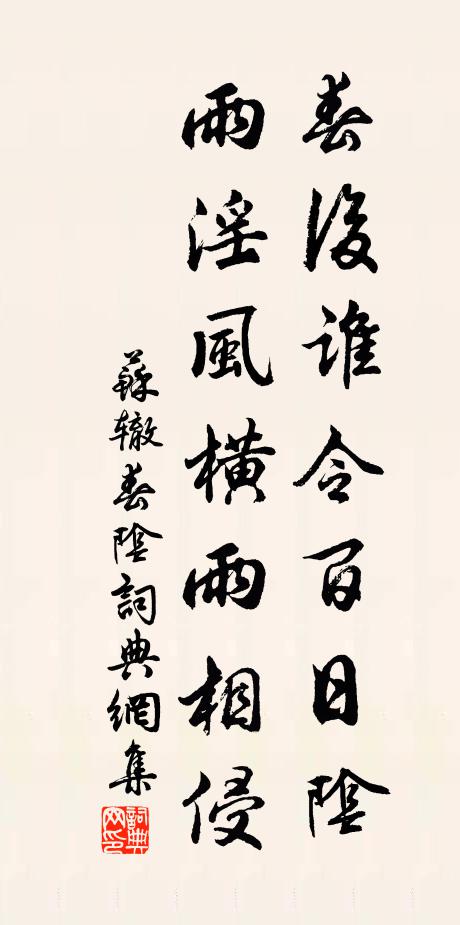 春後誰令百日陰
雨淫風橫雨相侵
蘇轍春陰詞典網集
詞典網印